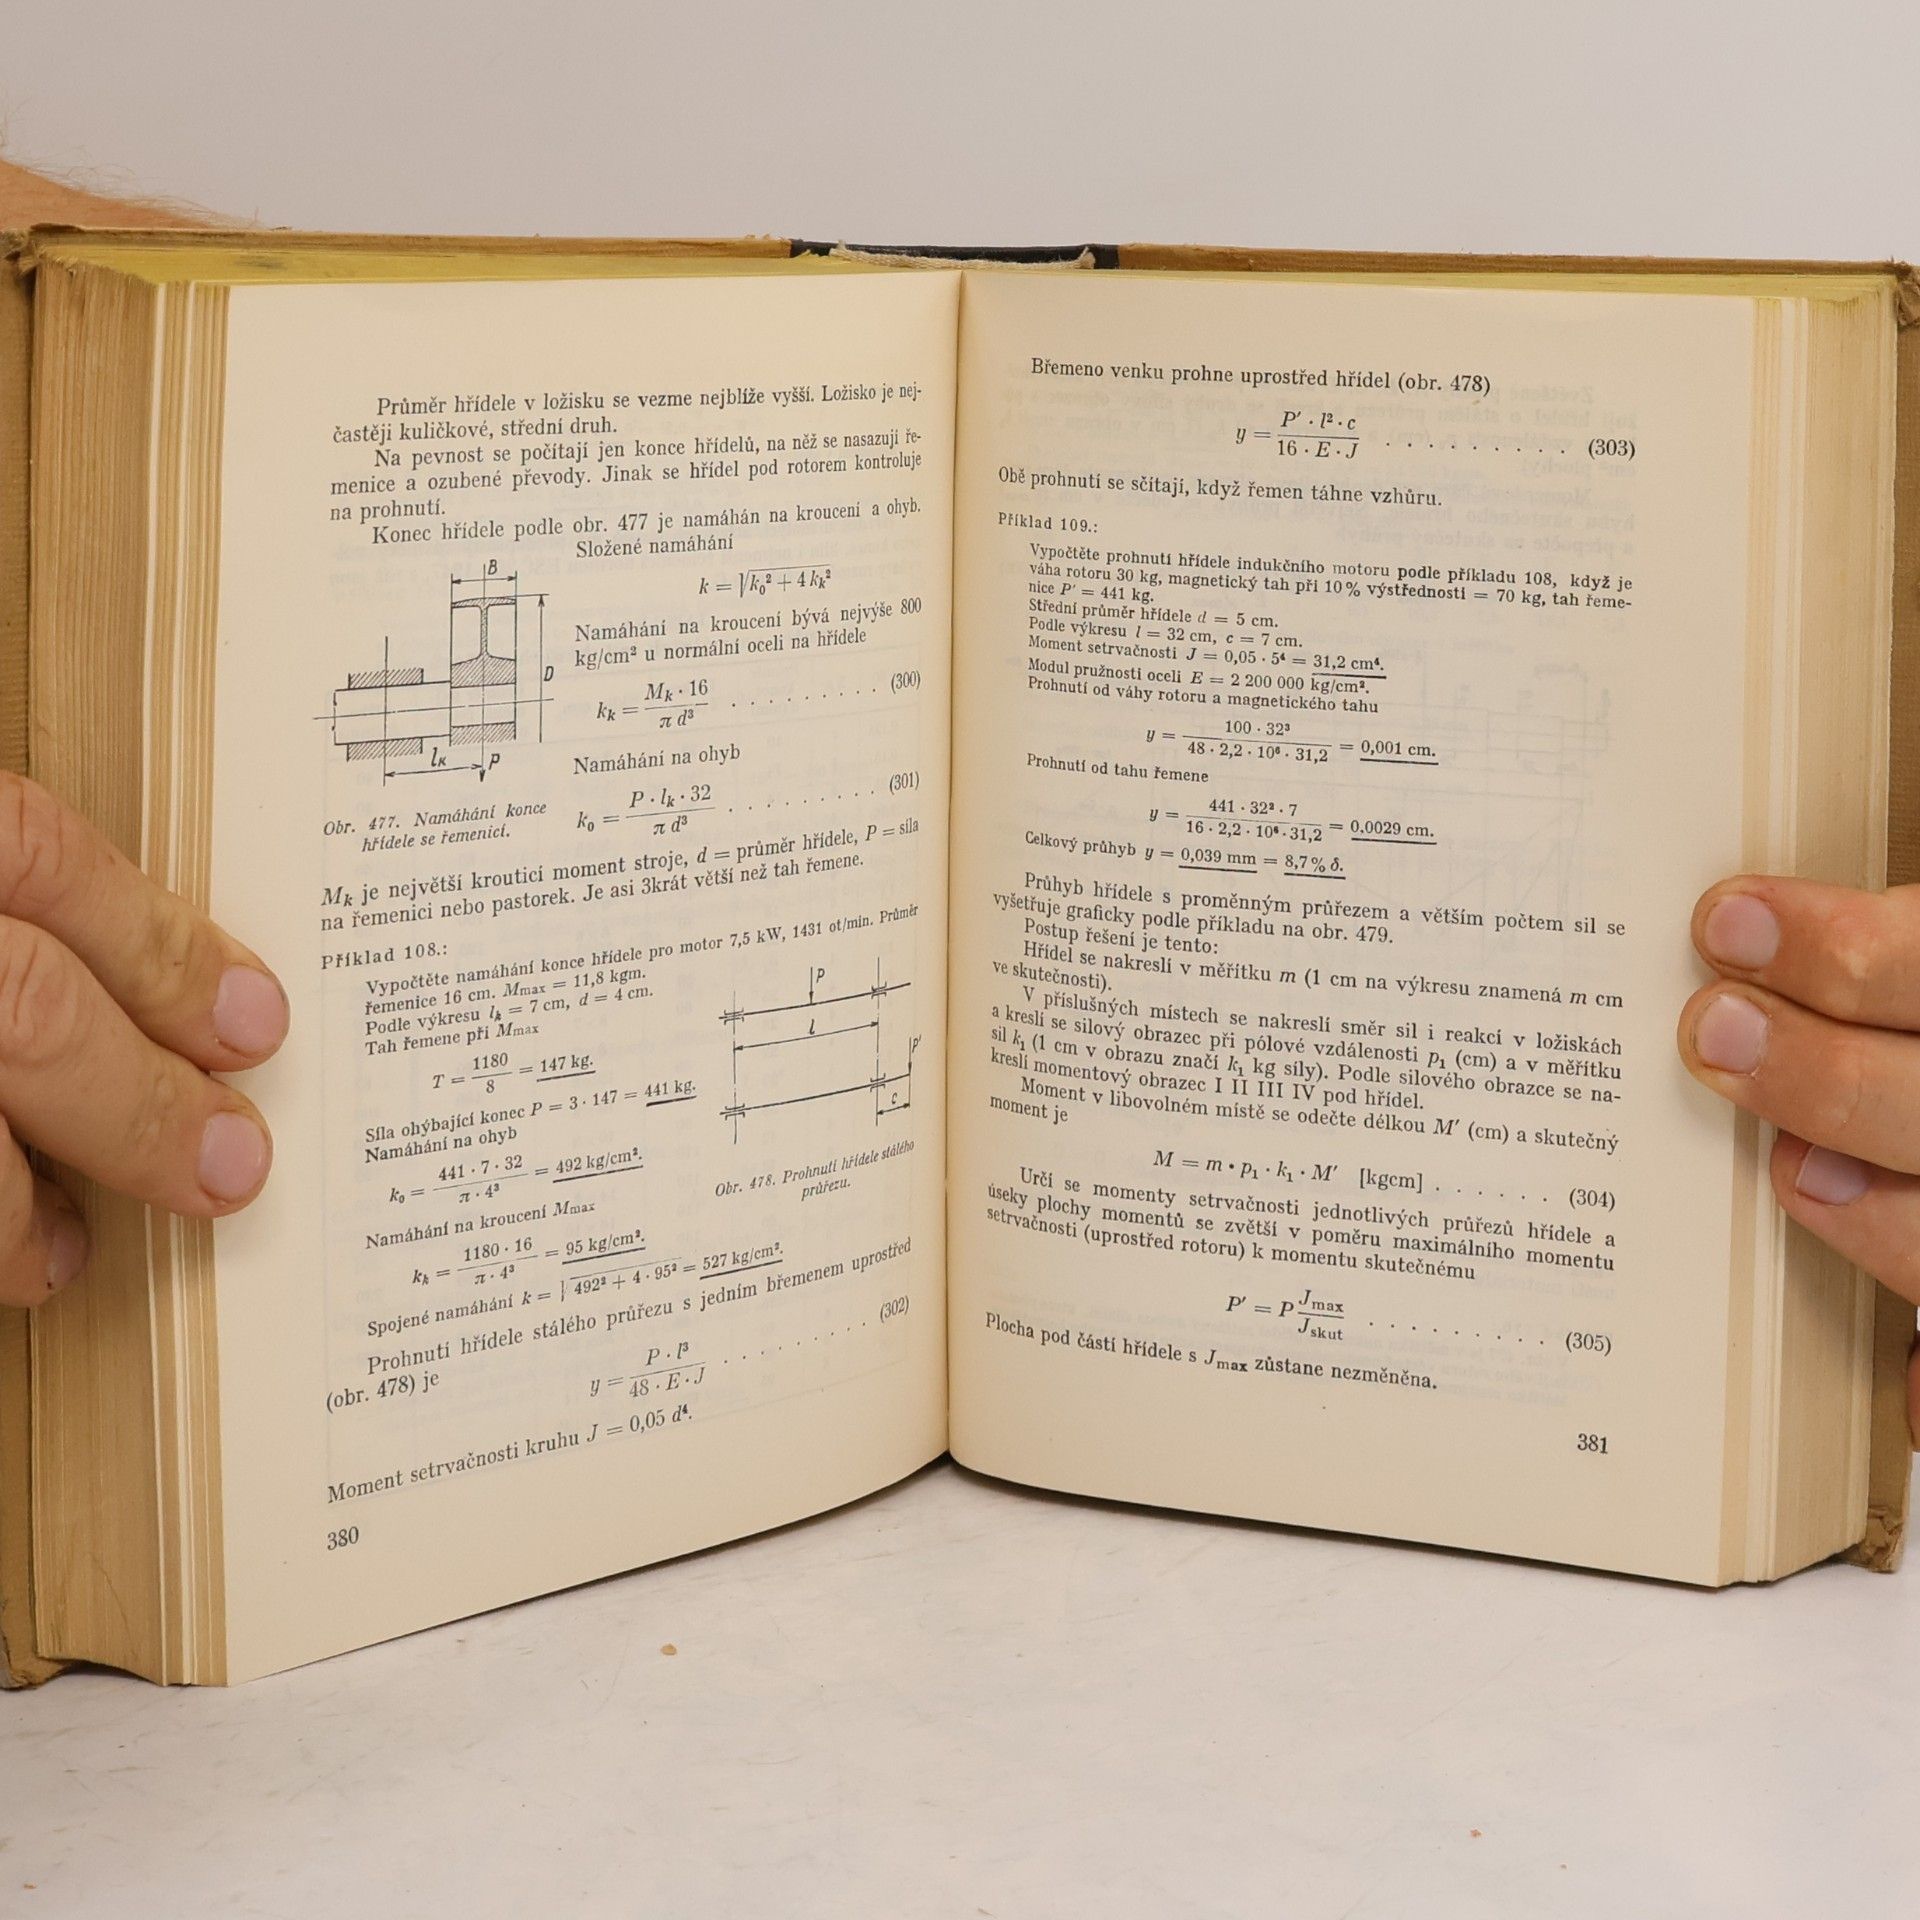 Průměr hřídele v ložisku se vezme nejblíže vyšší. Ložisko je nej-
častěji kuličkové, střední druh.
Na pevnost se počítají jen konce hřídelů, na něž se nasazují ře-
menice a ozubené převody. Jinak se hřídel pod rotorem kontroluje
na prohnutí.
Konec hřídele podle obr. 477 je namáhán na kroucení a ohyb.
Složené namáhání
k = √(k₀² + 4 kₖ²)
Namáhání na kroucení bývá nejvýše 800
kg/cm² u normální oceli na hřídele
kₖ = (Mₖ · 16) / (π d³) . . . . . . . . . (300)
Namáhání na ohyb
k₀ = (P · lₖ · 32) / (π d³) . . . . . . . . . (301)
B
D
lₖ
P
Obr. 477. Namáhání konce
hřídele se řemenicí.
Mₖ je největší krouticí moment stroje, d = průměr hřídele, P = síla
na řemenici nebo pastorek. Je asi 3krát větší než tah řemene.
Příklad 108.:
Vypočtěte namáhání konce hřídele pro motor 7,5 kW, 1431 ot/min. Průměr
řemenice 16 cm. Mmax = 11,8 kgm.
Podle výkresu lₖ = 7 cm, d = 4 cm.
Tah řemene při Mmax
T = 1180 / 8 = 147 kg.
Síla ohýbající konec P = 3 · 147 = 441 kg.
Namáhání na ohyb
k₀ = (441 · 7 · 32) / (π · 4³) = 492 kg/cm².
Namáhání na kroucení Mmax
kₖ = (1180 · 16) / (π · 4³) = 95 kg/cm².
Spojené namáhání k = √(492² + 4 · 95²) = 527 kg/cm².
P
l
P'
c
Obr. 478. Prohnutí hřídele stálého
průřezu.
Prohnutí hřídele stálého průřezu s jedním břemenem uprostřed
(obr. 478) je
y = (P · l³) / (48 · E · J) . . . . . . . . . (302)
Moment setrvačnosti kruhu J = 0,05 d⁴.
380
Břemeno venku prohne uprostřed hřídel (obr. 478)
y = (P' · l² · c) / (16 · E · J) . . . . . . . . . (303)
Obě prohnutí se sčítají, když řemen táhne vzhůru.
Příklad 109.:
Vypočtěte prohnutí hřídele indukčního motoru podle příkladu 108, když je
váha rotoru 30 kg, magnetický tah při 10 % výstřednosti = 70 kg, tah řeme-
nice P' = 441 kg.
Střední průměr hřídele d = 5 cm.
Podle výkresu l = 32 cm, c = 7 cm.
Moment setrvačnosti J = 0,05 · 5⁴ = 31,2 cm⁴.
Modul pružnosti oceli E = 2 200 000 kg/cm².
Prohnutí od váhy rotoru a magnetického tahu
y = (100 · 32³) / (48 · 2,2 · 10⁶ · 31,2) = 0,001 cm.
Prohnutí od tahu řemene
y = (441 · 32² · 7) / (16 · 2,2 · 10⁶ · 31,2) = 0,0029 cm.
Celkový průhyb y = 0,039 mm = 8,7 % δ.
Průhyb hřídele s proměnným průřezem a větším počtem sil se
vyšetřuje graficky podle příkladu na obr. 479.
Postup řešení je tento:
Hřídel se nakreslí v měřítku m (1 cm na výkresu znamená m cm
ve skutečnosti).
V příslušných místech se nakreslí směr sil i reakcí v ložiskách
a kreslí se silový obrazec při pólové vzdálenosti p₁ (cm) a v měřítku
sil k₁ (1 cm v obrazu značí k₁ kg síly). Podle silového obrazce se na-
kreslí momentový obrazec I II III IV pod hřídel.
Moment v libovolném místě se odečte délkou M' (cm) a skutečný
moment je
M = m · p₁ · k₁ · M' [kgcm] . . . . . . (304)
Určí se momenty setrvačnosti jednotlivých průřezů hřídele a
úseky plochy momentů se zvětší v poměru maximálního momentu
setrvačnosti (uprostřed rotoru) k momentu skutečnému
P' = P Jmax / Jskut . . . . . . . . . (305)
Plocha pod částí hřídele s Jmax zůstane nezměněna.
381